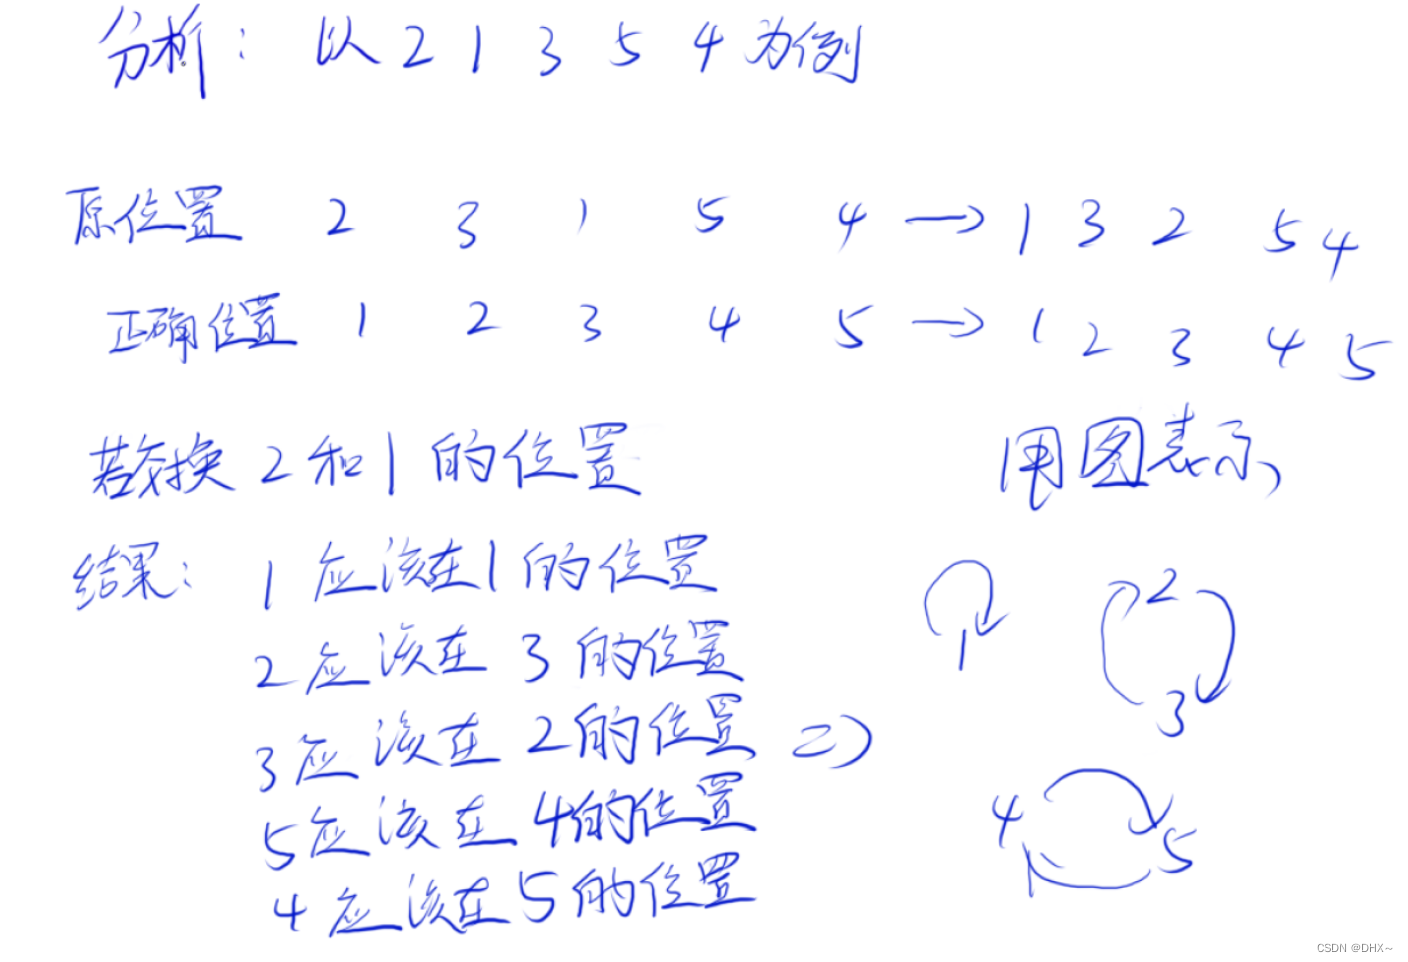 分析: 以 2 1 3 5 4 为例
原位置 2 3 1 5 4 → 1 3 2 5 4
正确位置 1 2 3 4 5 → 1 2 3 4 5
若交换 2 和 1 的位置
用图表示,
结果: 1 应该在 1 的位置
2 应该在 3 的位置
3 应该在 2 的位置 =>
5 应该在 4 的位置
4 应该在 5 的位置
1
2
3
4
5
CSDN @DHX~